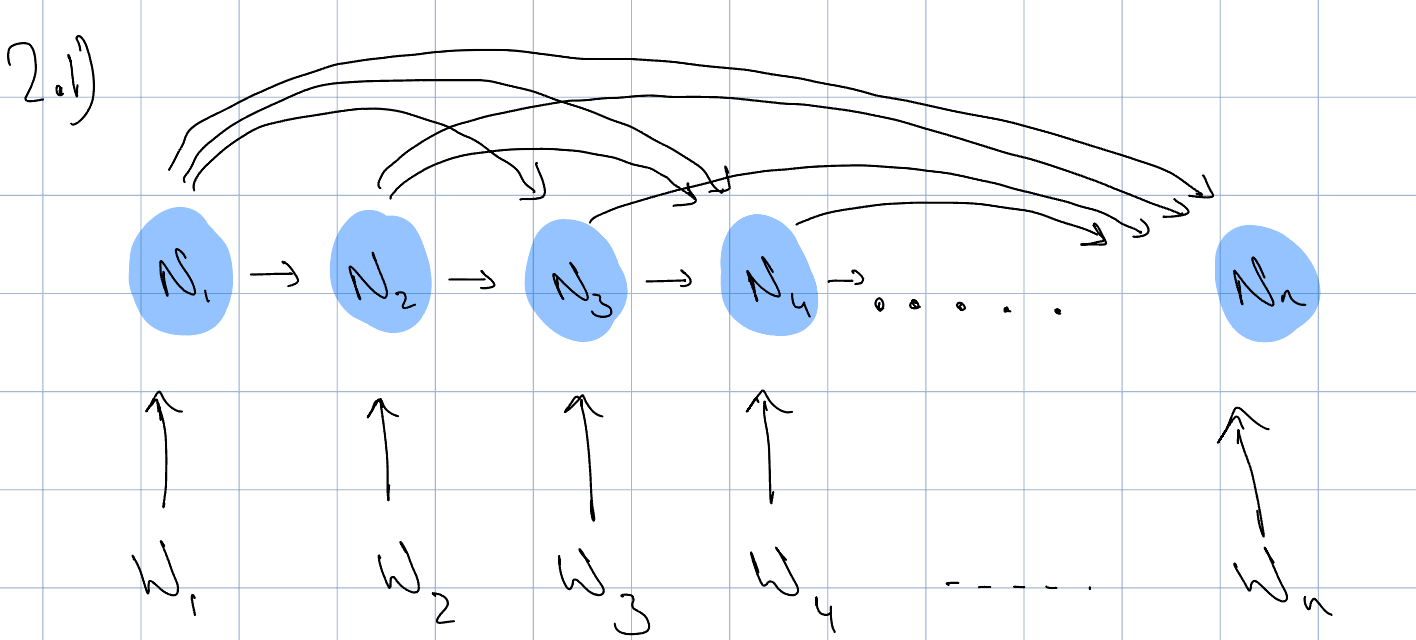 2.1)
N₁ → N₂ → N₃ → N₄ → ...... Nₙ
W₁ W₂ W₃ W₄ ----- Wₙ